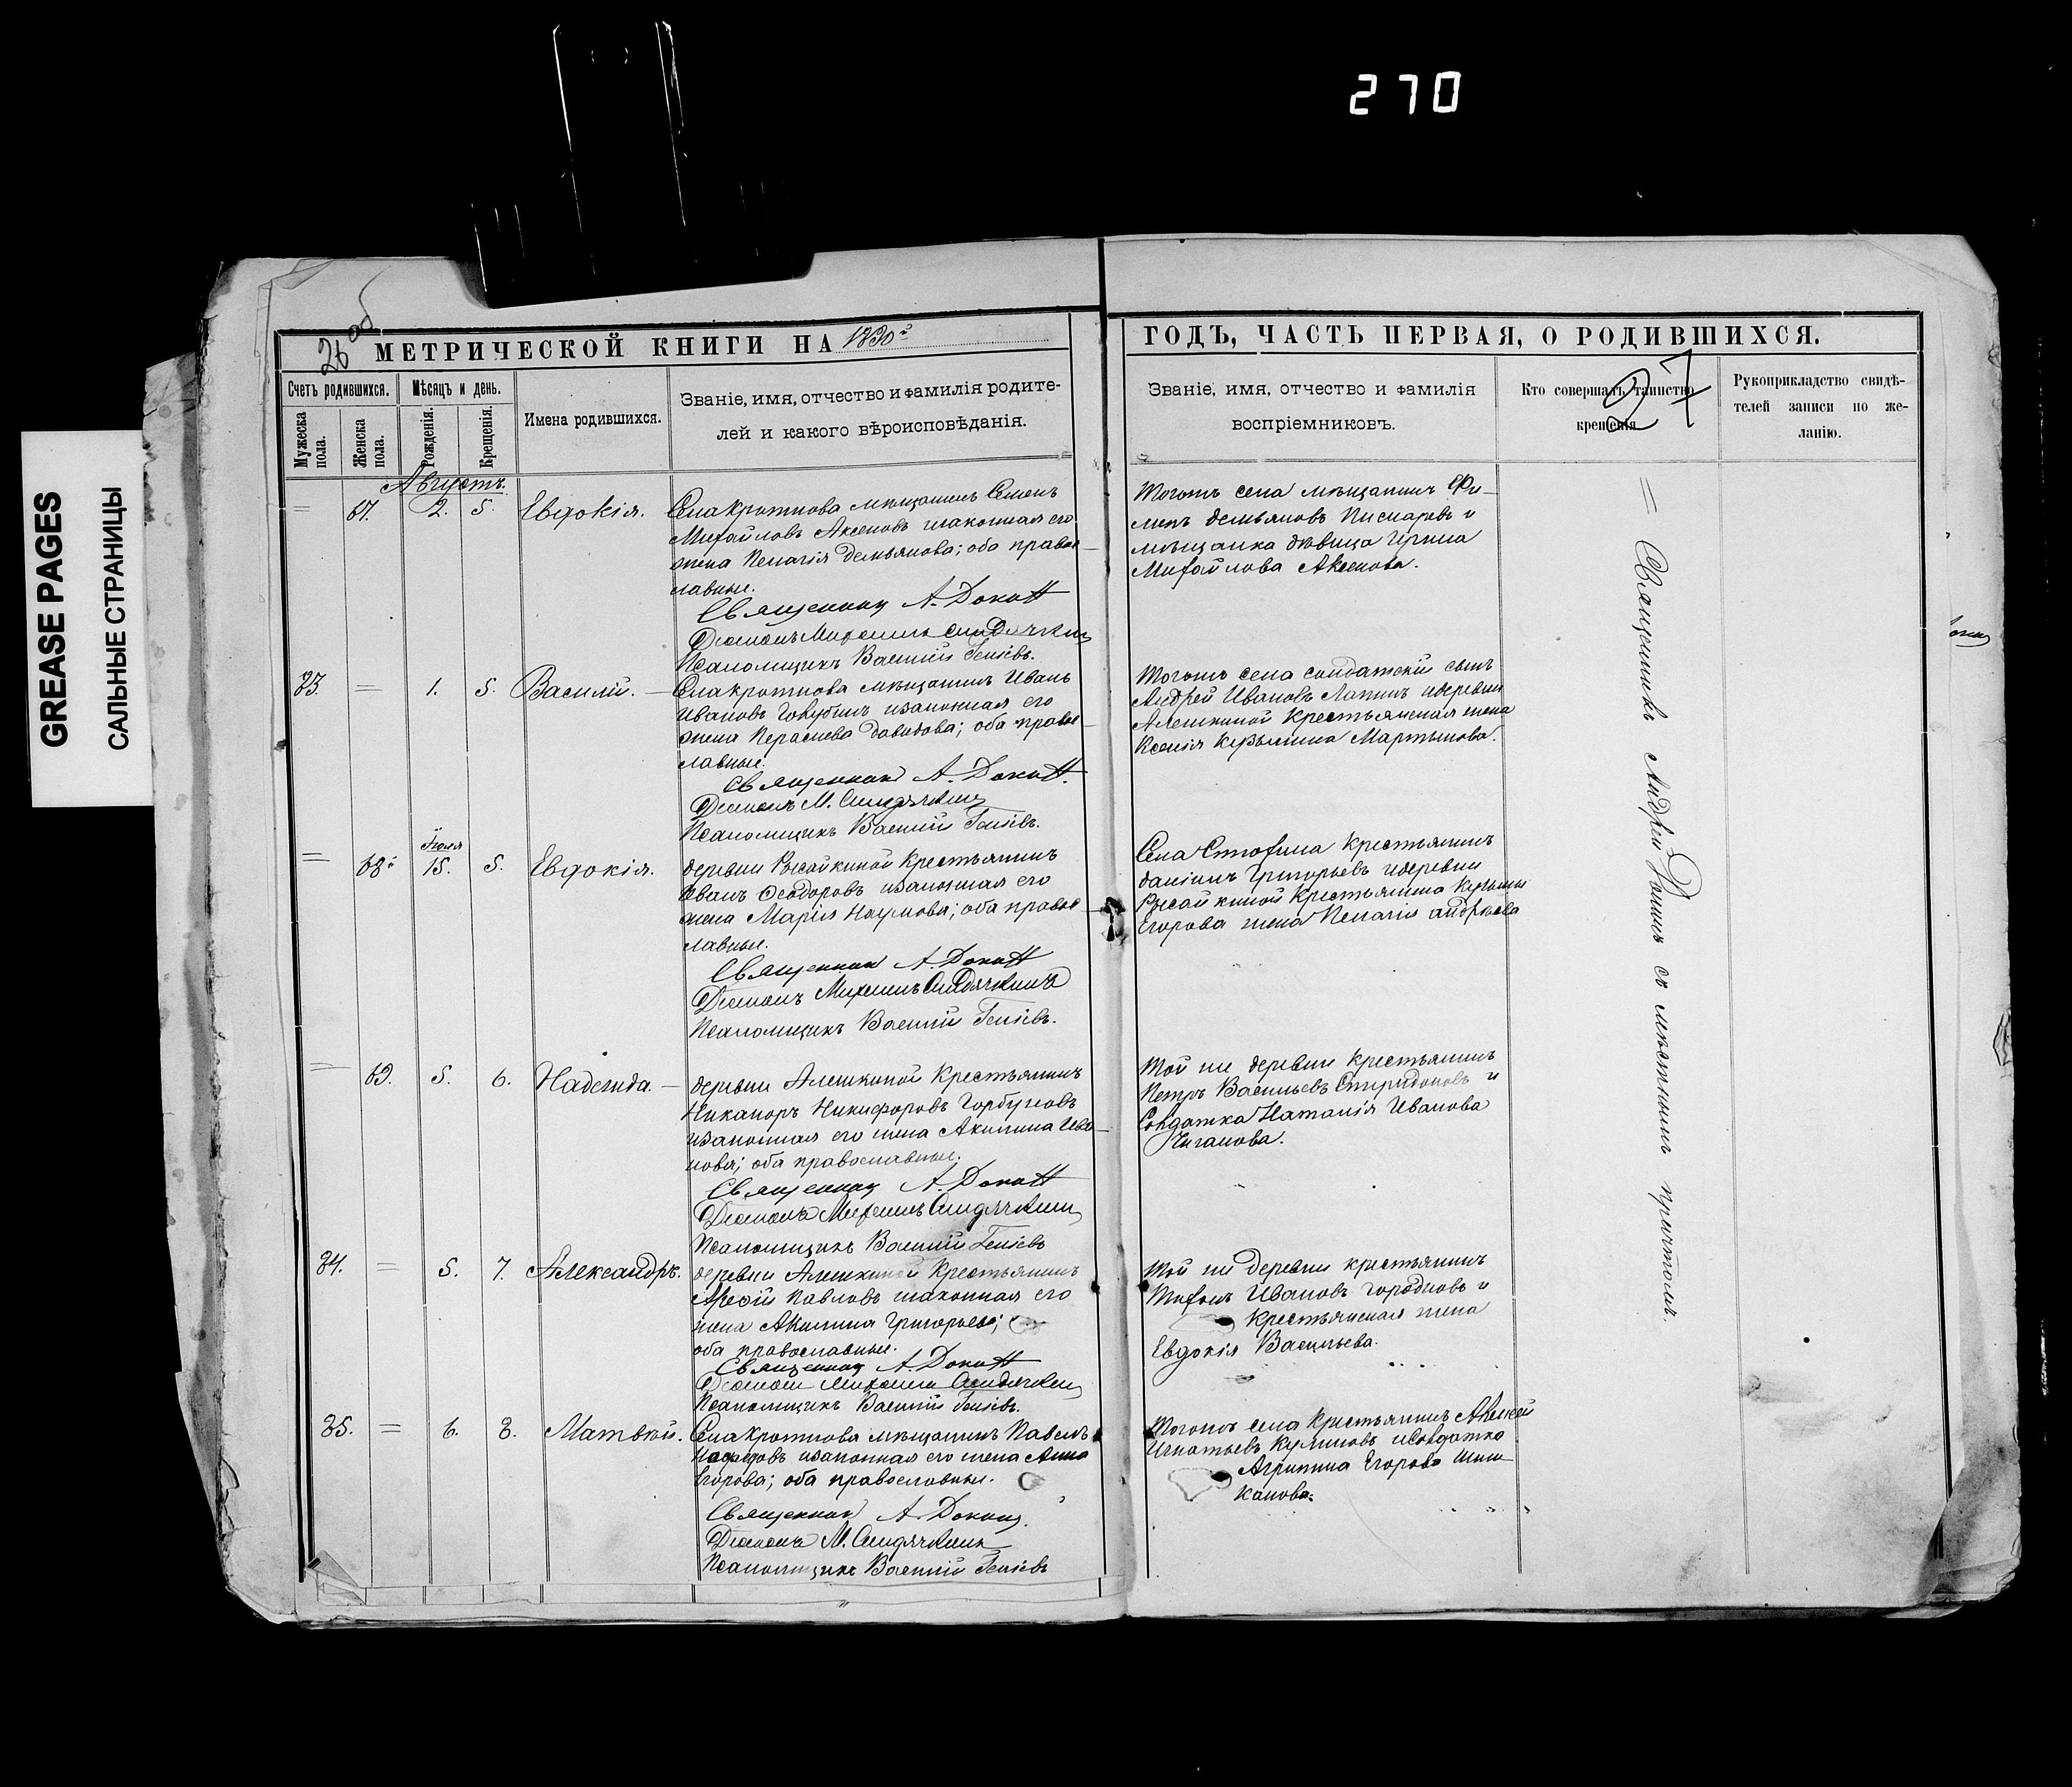 270
GREASE PAGES
САЛЬНЫЕ СТРАНИЦЫ
26 об
МЕТРИЧЕСКОЙ КНИГИ НА
ГОДЪ, ЧАСТЬ ПЕРВАЯ, О РОДИВШИХСЯ.
27
Счетъ родившихся.
Мужеска пола.
Женска пола.
Мѣсяцъ и день.
Рожденія.
Крещенія.
Имена родившихся.
Званіе, имя, отчество и фамилія родите-
лей и какого вѣроисповѣданія.
Званіе, имя, отчество и фамилія
воспріемниковъ.
Кто совершалъ таинство
крещенія
Рукоприкладство свидѣ-
телей записи по же-
ланію.
Августъ.
67. 2. 5. Евдокія.
Села Кроткова мѣщанинъ Семенъ
Михайловъ Аксеновъ изаконная его
жена Пелагія Демьянова; оба правос-
лавные.
Священникъ А.
Діаконъ Михаилъ
Псаломщикъ Василій
Тогожъ села мѣщанинъ Фи-
липъ Демьяновъ Писаревъ и
мѣщанка дѣвица Ирина
Михайлова Аксенова.
= Священникъ Андрей съ мѣстнымъ причтомъ.
83. = 1. 5. Василій.
Села Кроткова мѣщанинъ Иванъ
Ивановъ Голубинъ изаконная его
жена Параскева Давидова; оба правос-
лавные.
Священникъ А.
Діаконъ М.
Псаломщикъ Василій
Тогожъ села солдатскій сынъ
Андрей Ивановъ Лапинъ идеревни
Алешкиной Крестьянская жена
Ксенія Кузьмина Мартынова.
= 68. Іюля 15. 5. Евдокія.
деревни Рысайкиной Крестьянинъ
Иванъ Ѳеодоровъ изаконная его
жена Марія Наумова; оба правос-
лавные.
Священникъ А.
Діаконъ Михаилъ
Псаломщикъ Василій
Села Крестьянинъ
Даніилъ Григорьевъ идеревни
Рысайкиной Крестьянина Кузьмы
Егорова жена Пелагія Андреева
= 69. 5. 6. Надежда.
деревни Алешкиной Крестьянинъ
Никаноръ Никифоровъ Горбуновъ
изаконная его жена Акилина Ива-
нова; оба православные.
Священникъ А.
Діаконъ Михаилъ
Псаломщикъ Василій
Той же деревни Крестьянинъ
Петръ Васильевъ Спиридоновъ и
Солдатка Наталія Иванова
Чиганова.
84. = 5. 7. Александръ.
деревни Алешкиной Крестьянинъ
Павловъ изаконная его
жена Акилина Григорьева;
оба православные.
Священникъ А.
Діаконъ Михаилъ
Псаломщикъ Василій
Той же деревни крестьянинъ
Тихонъ Ивановъ Городновъ и
Крестьянская жена
Евдокія Васильева.
85. = 6. 8. Матвѣй.
Села Кроткова мѣщанинъ Павелъ
изаконная его жена Анна
Егорова; оба православные.
Священникъ А.
Діаконъ М.
Псаломщикъ Василій
Тогожъ села Крестьянинъ Алексѣй
Игнатьевъ Куликовъ исолдатка
Агрипина Егорова Шиш-
канова.